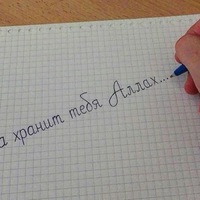 а хранит тебя Аллах....